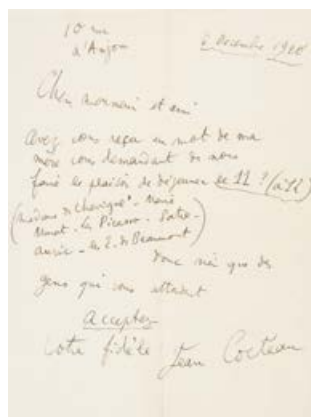 10 rue
d'Anjou
6 Decembre 1920
Cher monsieur et ami
avez vous reçu un mot de ma
mère vous demandant de nous
faire le plaisir de déjeuner le 11 ? (à 12)
(Madame de Chevigné - Marie
Murat - les Picasso - Satie -
Auric - les E. de Beaumont)
Donc rien que des
gens qui vous attendent
acceptez
votre fidèle
Jean Cocteau